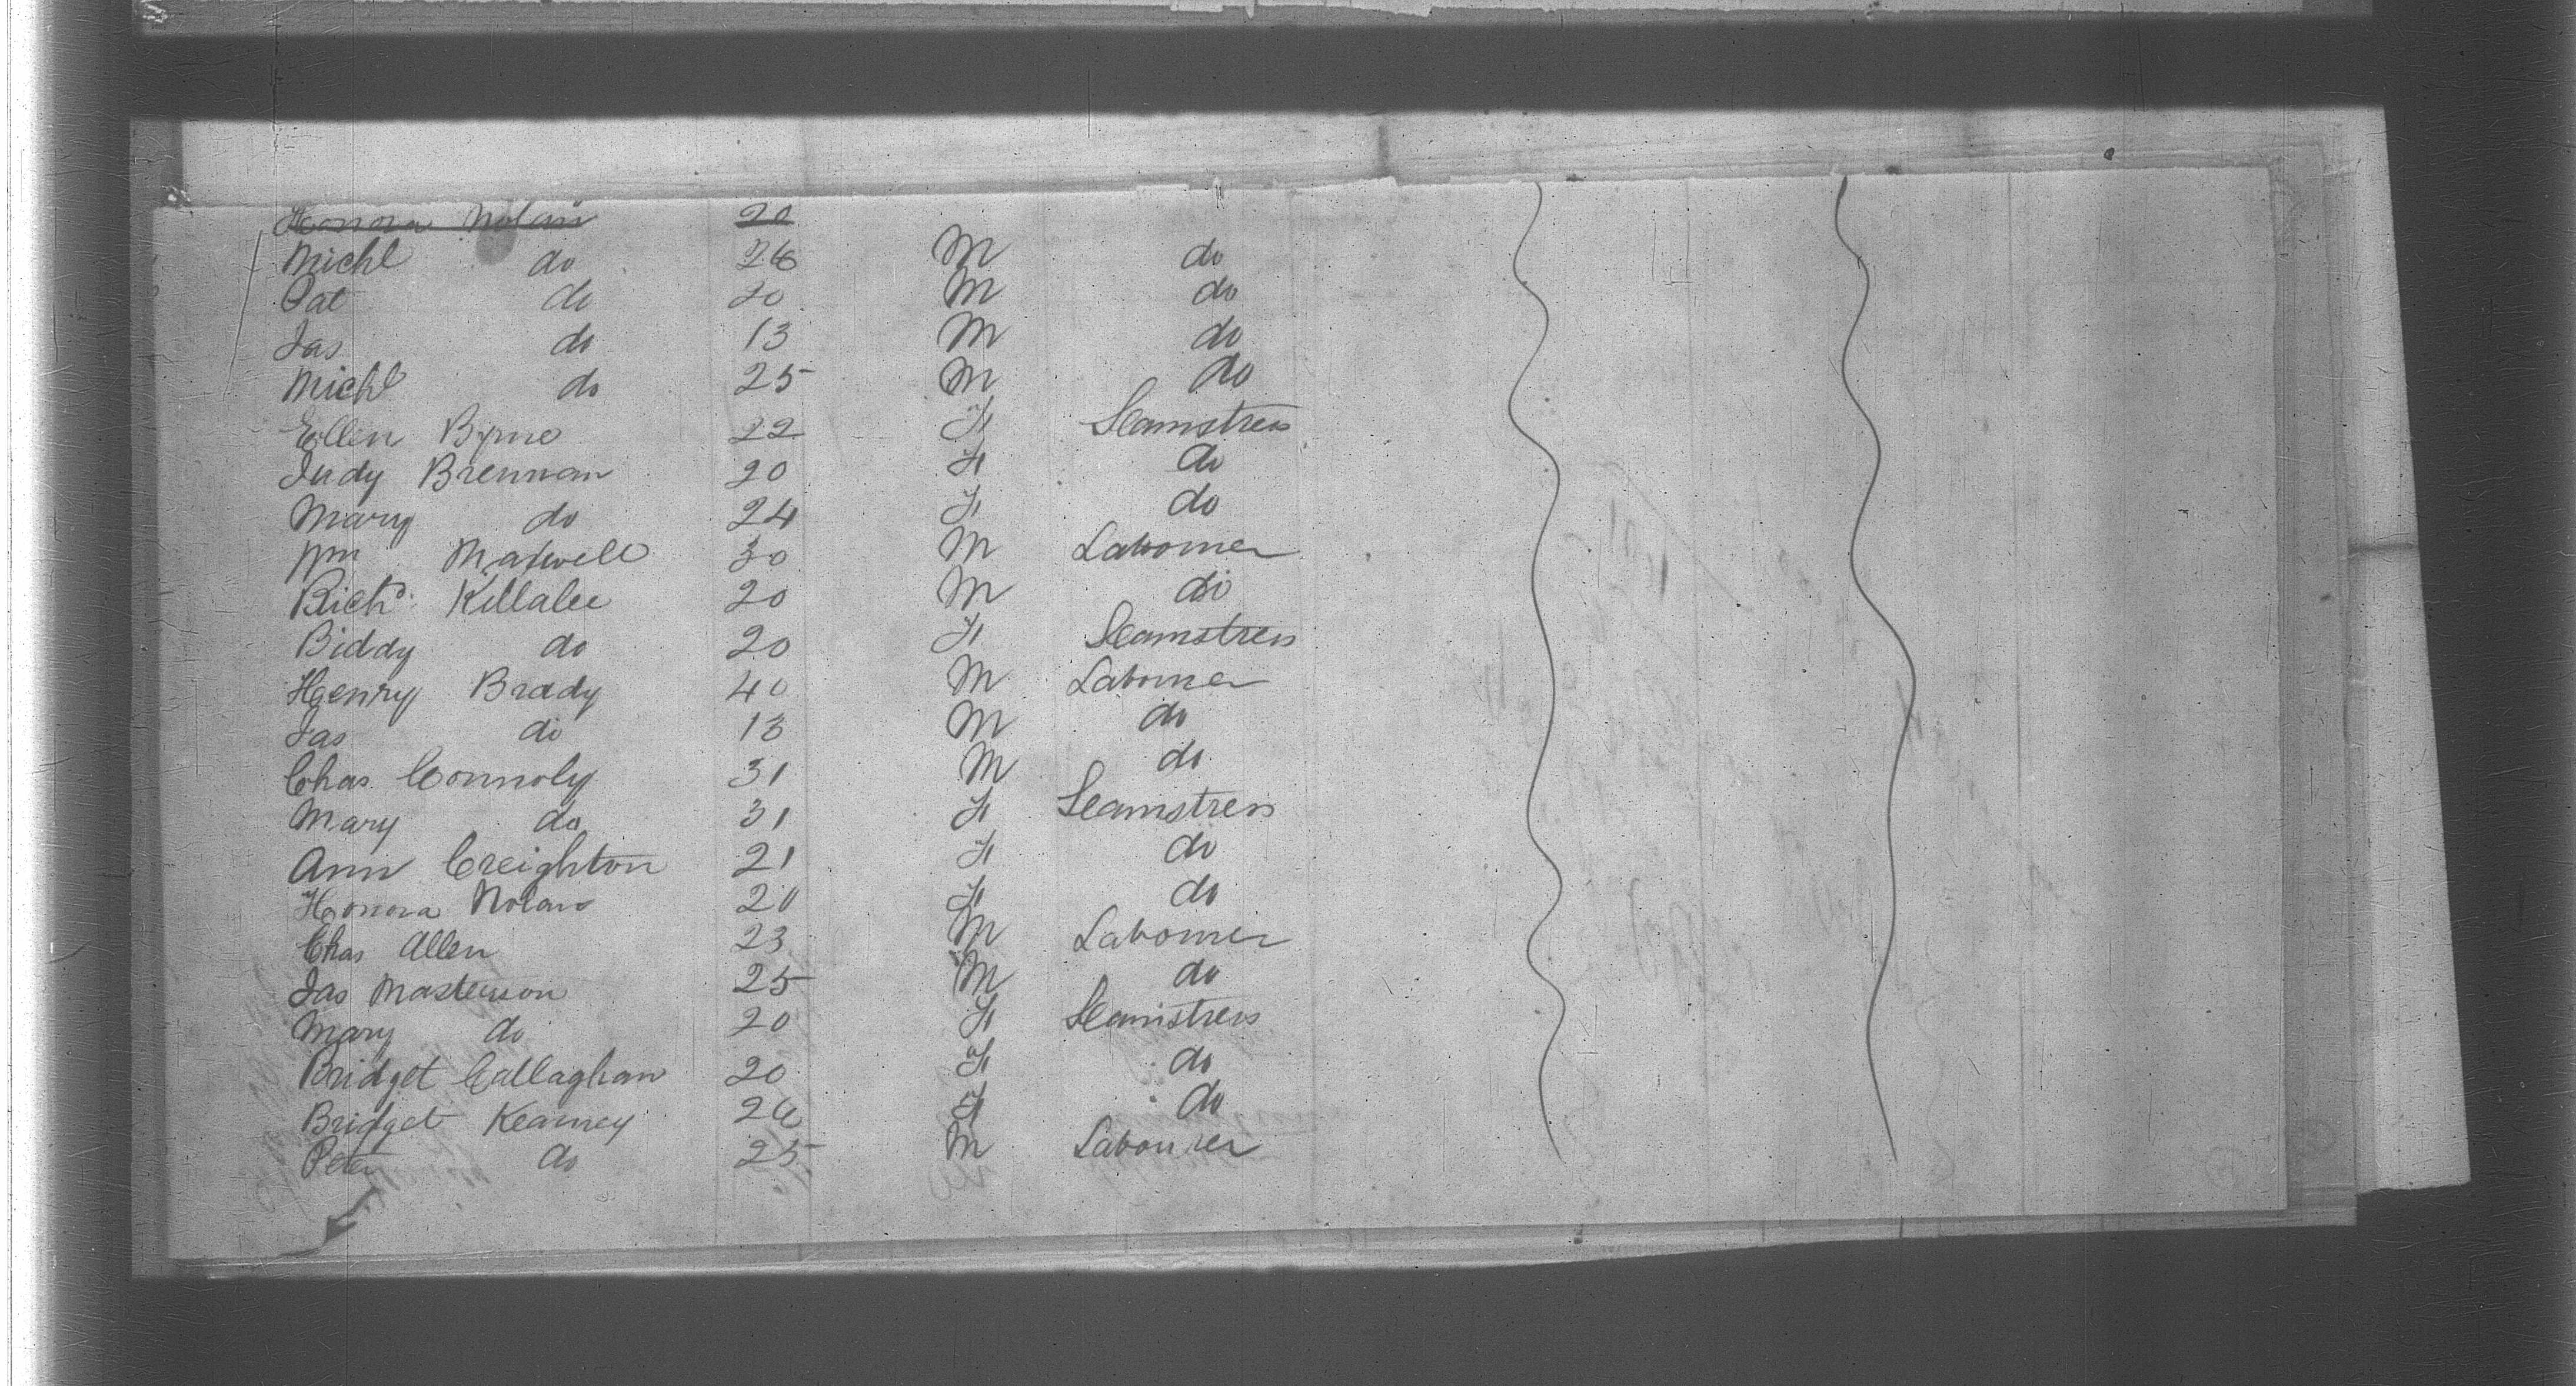 Honora Nolan 20
Michl do 26 M do
Pat do 20 M do
Jas do 13 M do
Michl do 25 M do
Ellen Byrne 22 F Seamstress
Judy Brennan 20 F do
Mary do 24 F do
Wm Maxwell 30 M Labourer
Richd. Killalee 20 M do
Biddy do 20 F Seamstress
Henry Brady 40 M Labourer
Jas do 13 M do
Chas. Connoly 31 M do
Mary do 31 F Seamstress
Ann Creighton 21 F do
Honora Nolan 20 F do
Chas Allen 23 M Labourer
Jas Masterson 25 M do
Mary do 20 F Seamstress
Bridget Callaghan 20 F do
Bridget Kearney 26 F do
Peter do 25 M Labourer